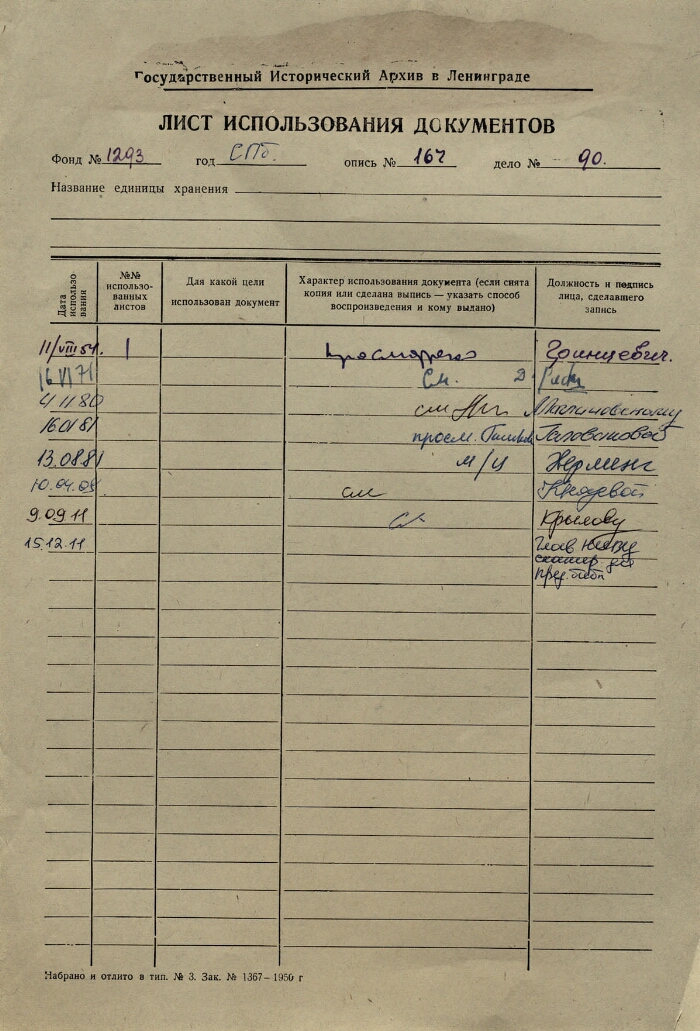 Государственный Исторический Архив в Ленинграде
ЛИСТ ИСПОЛЬЗОВАНИЯ ДОКУМЕНТОВ
Фонд № 1293 год СПб. опись № 167 дело № 90.
Название единицы хранения
Дата использования
№№ использованных листов
Для какой цели использован документ
Характер использования документа (если снята копия или сделана выпись — указать способ воспроизведения и кому выдано)
Должность и подпись лица, сделавшего запись
11/VIII 54. 1 Гринцевич.
16 VI 71 См.
4 11 80 см
16 01 81 просм.
13.08.81 м/ц
см
9.09.11 см Крылову
15.12.11 Глав
сканир. для
Набрано и отлито в тип. № 3. Зак. № 1367—1950 г